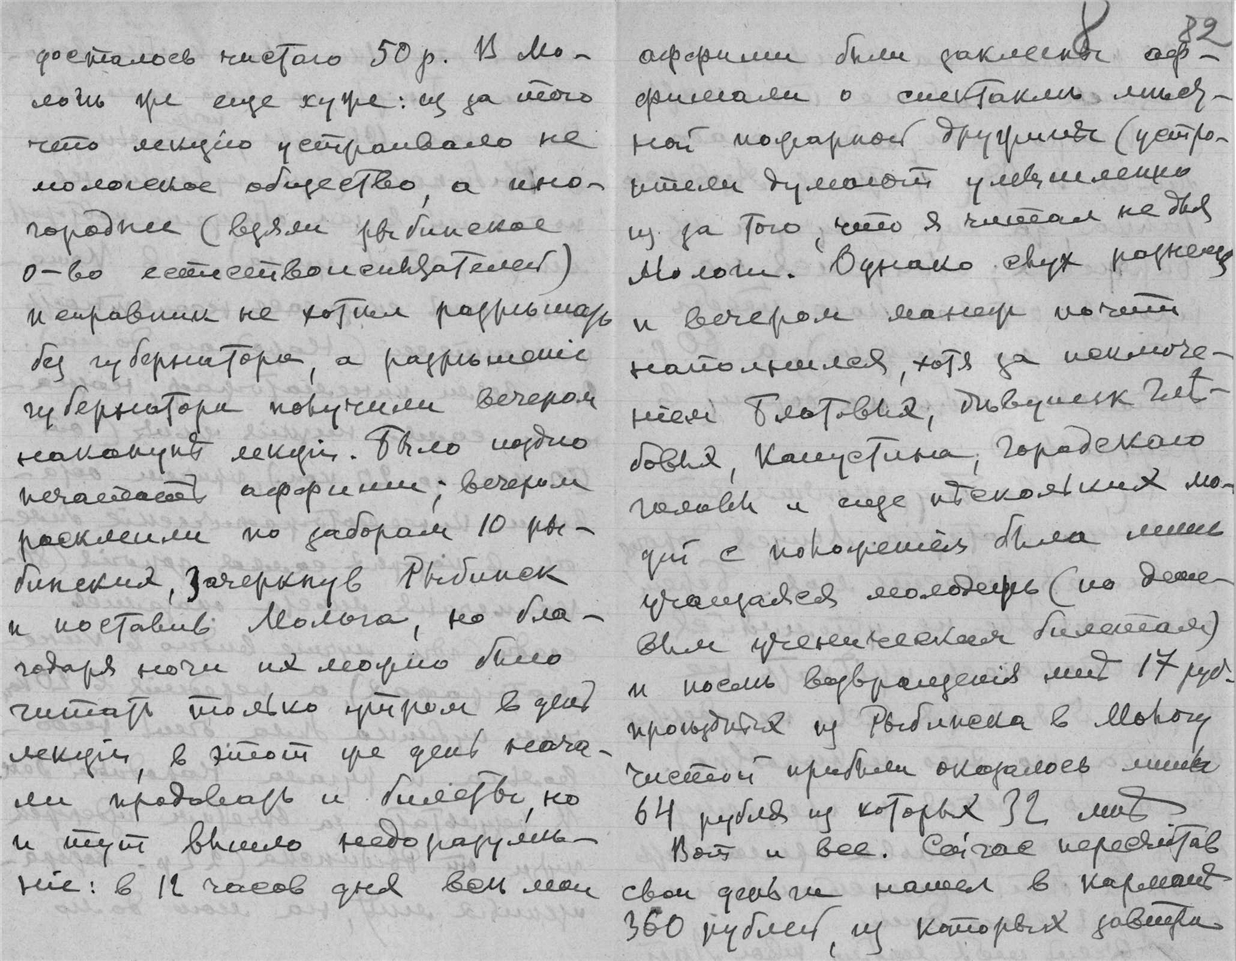 досталось чистаго 50 р. В Мо-
логѣ же еще хуже: из за того
что лекцію устраивало не
мологское общество, а ино-
городнее (взяли рыбинское
о-во естествоиспытателей)
исправник не хотѣл разрѣшать
без губернатора, а разрѣшеніе
губернатора получили вечером
наканунѣ лекціи. Было поздно
печатать аффиши; вечером
расклеили по заборам 10 ры-
бинских, зачеркнув Рыбинск
и поставив Молога, но бла-
годаря ночи их можно было
читать только утром в день
лекціи, в этот же день нача-
ли продавать и билеты, но
и тут вышло недоразумѣ-
ніе: в 12 часов дня всѣ мои
8 82
аффиши были заклеены аф-
фишами о спектаклѣ мѣст-
ной пожарной дружины (устро-
ители думают умышленно
из за того, что я читал не для
Мологи. Однако слух разнесся
и вечером манеж почти
наполнился, хотя за исключе-
ніем Блатовых, бывших Глѣ-
бовых, Капустина, Городского
головы и еще нѣскольких мо-
дей с положеніем была лишь
учащаяся молодежь (по деше-
вым ученическим билетам)
и послѣ возвращенія мнѣ 17 руб.
проѣздных из Рыбинска в Мологу
чистой прибыли оказалось лишь
64 рубля из которых 32 мнѣ
Вот и все. Сейчас пересчитав
свои деньги нашел в карманѣ
360 рублей, из которых завтра